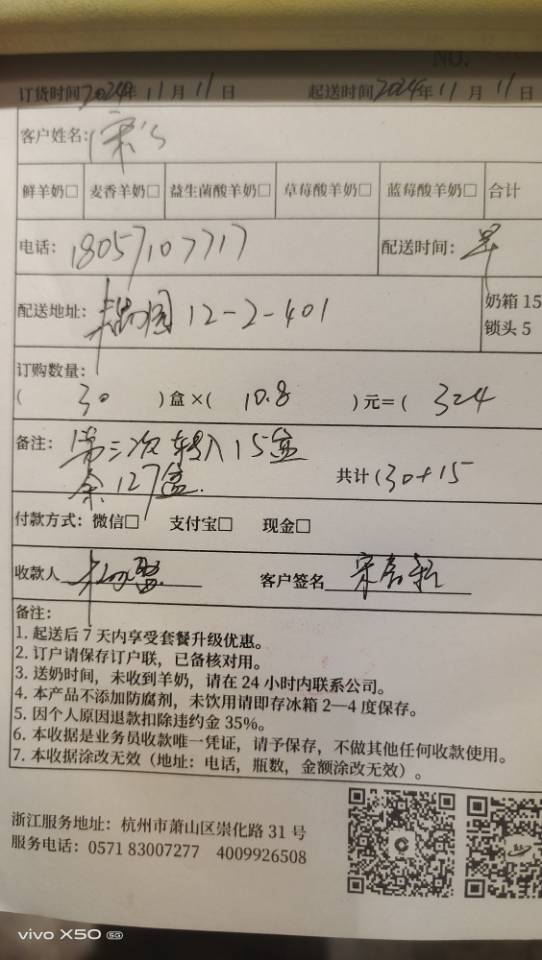 NO.
订货时间2024年11月11日 起送时间2024年11月11日
客户姓名：宋
鲜羊奶□ 麦香羊奶□ 益生菌酸羊奶□ 草莓酸羊奶□ 蓝莓酸羊奶□ 合计
电话：18057107717 配送时间：早
配送地址：12-2-401 奶箱 15
锁头 5
订购数量：
( 30 )盒×( 10.8 )元=( 324
备注：第三次转入15盒
余127盒. 共计(30+15
付款方式：微信□ 支付宝□ 现金□
收款人 客户签名 宋
备注：
1. 起送后 7 天内享受套餐升级优惠。
2. 订户请保存订户联，已备核对用。
3. 送奶时间，未收到羊奶，请在 24 小时内联系公司。
4. 本产品不添加防腐剂，未饮用请即存冰箱 2—4 度保存。
5. 因个人原因退款扣除违约金 35%。
6. 本收据是业务员收款唯一凭证，请予保存，不做其他任何收款使用。
7. 本收据涂改无效（地址：电话，瓶数，金额涂改无效）。
浙江服务地址：杭州市萧山区崇化路 31 号
服务电话：0571 83007277 4009926508
vivo X50 5G